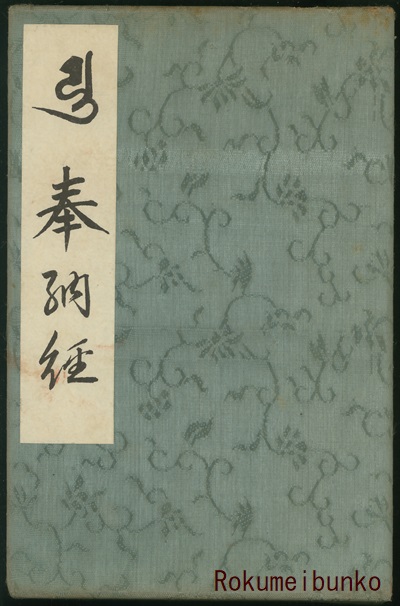 奉納経
Rokumeibunko